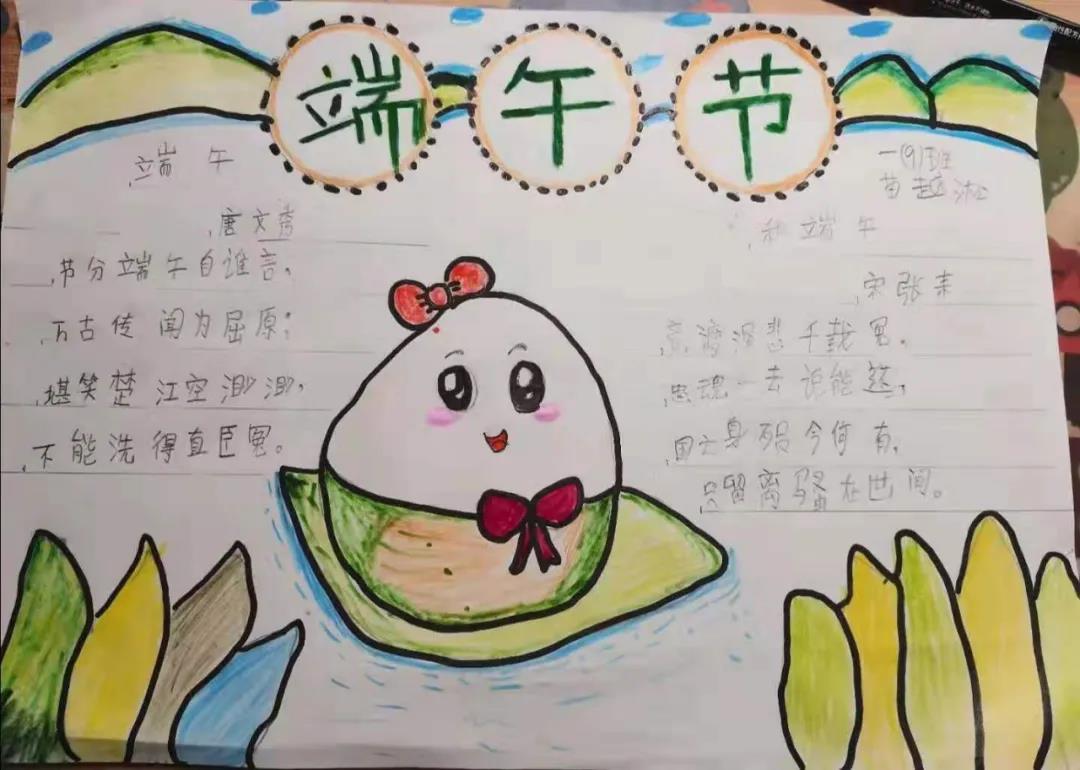 端午节
端 午
唐 文秀
节分端午自谁言。
万古传闻为屈原;
堪笑楚江空渺渺,
不能洗得直臣冤。
一(9)班
苗越淞
和端午
宋张耒
竞渡深悲千载冤。
忠魂一去 能
国亡身殒今何有,
只留离骚在世间。